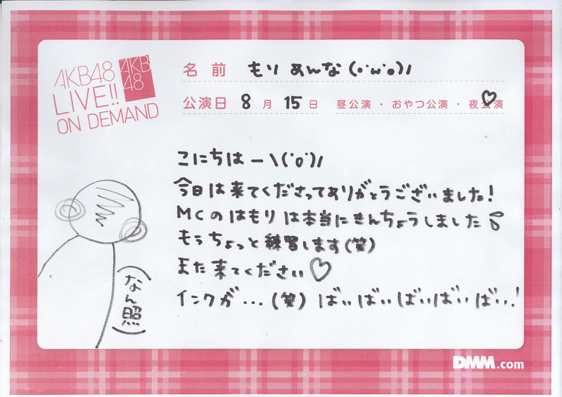 AKB48
LIVE!!
ON DEMAND
AKB
48
名前 もり あんな (о´ω`о)ﾉ
公演日 8月 15日 昼公演・おやつ公演・夜公演
こにちはー\(´o`)ﾉ
今日は来てくださってありがとうございました!
MCのはもりは本当にきんちょうしました
もうちょっと練習します(笑)
また来てください♡
インクが...(笑) ばいばいばいばいばい!
(なん照)
DMM.com